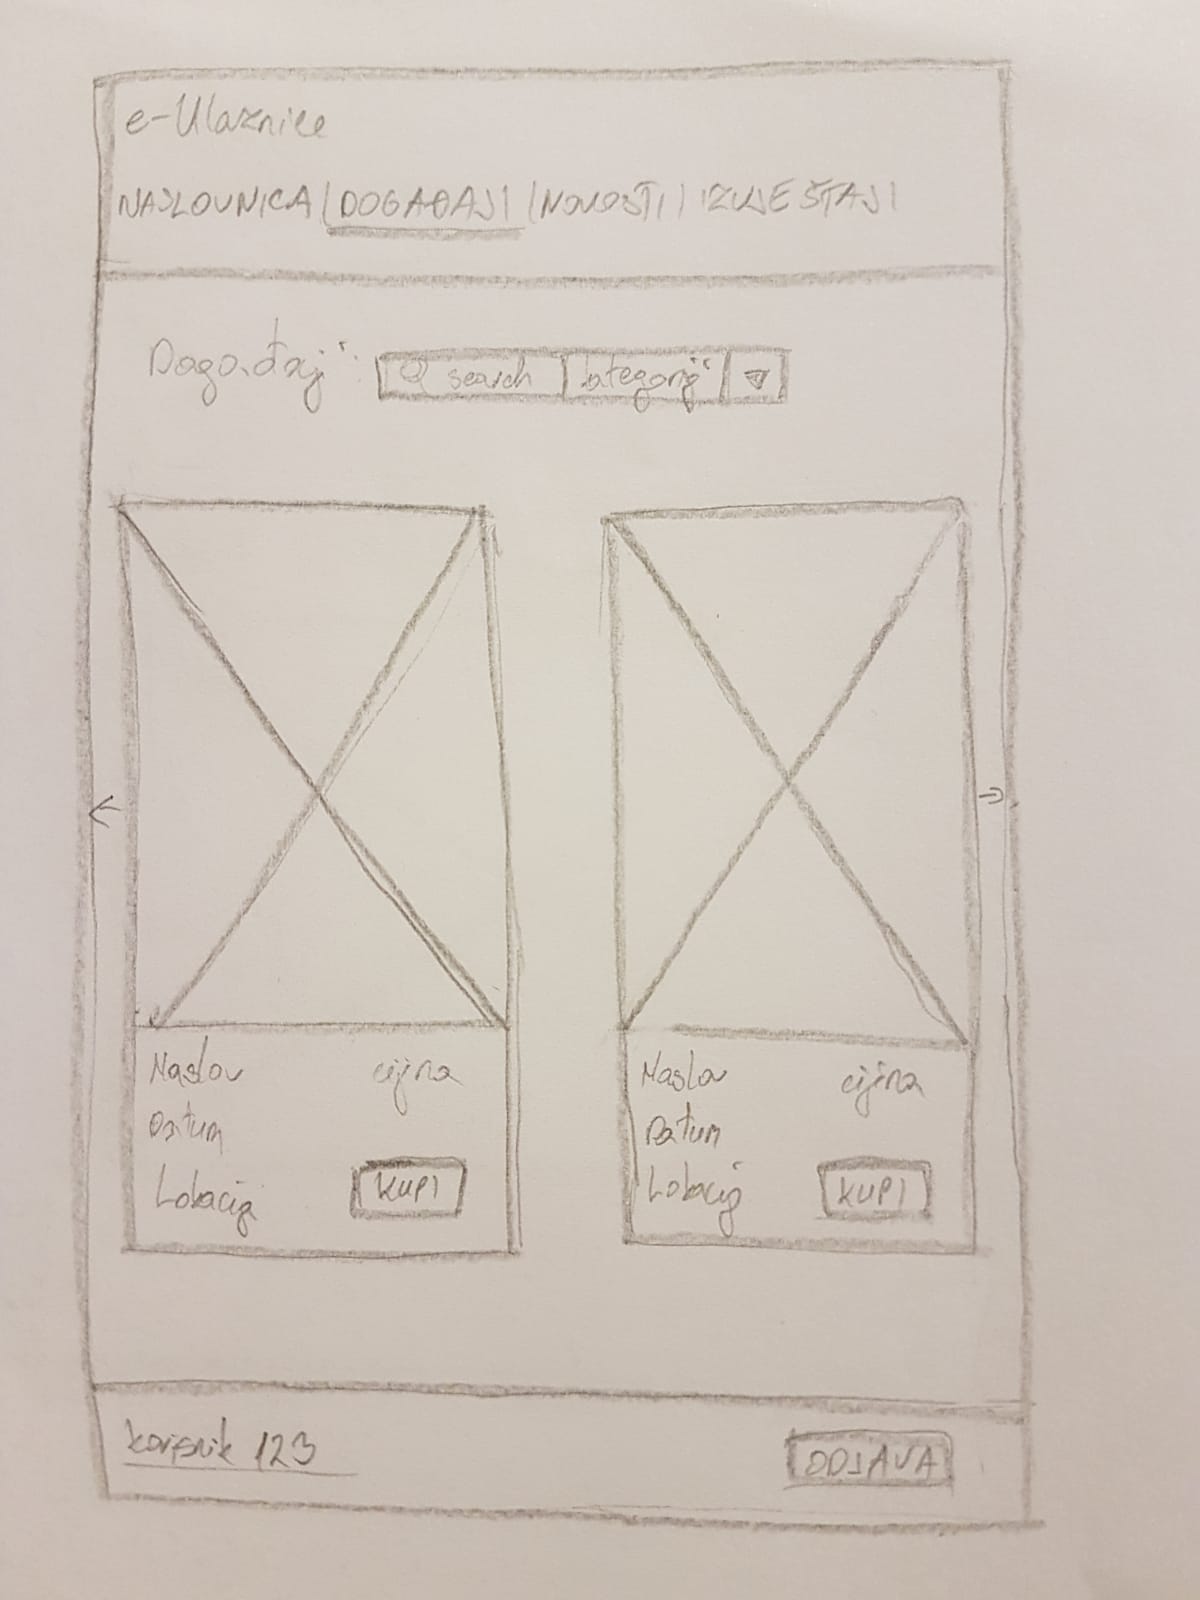 e-Ulaznice
NASLOVNICA | DOGAĐAJI | NOVOSTI | IZVJEŠTAJI
Događaji: search kategorij
Naslov cijena
Datum
Lokacija KUPI
Naslov cijena
Datum
Lokacija KUPI
korisnik 123 ODJAVA